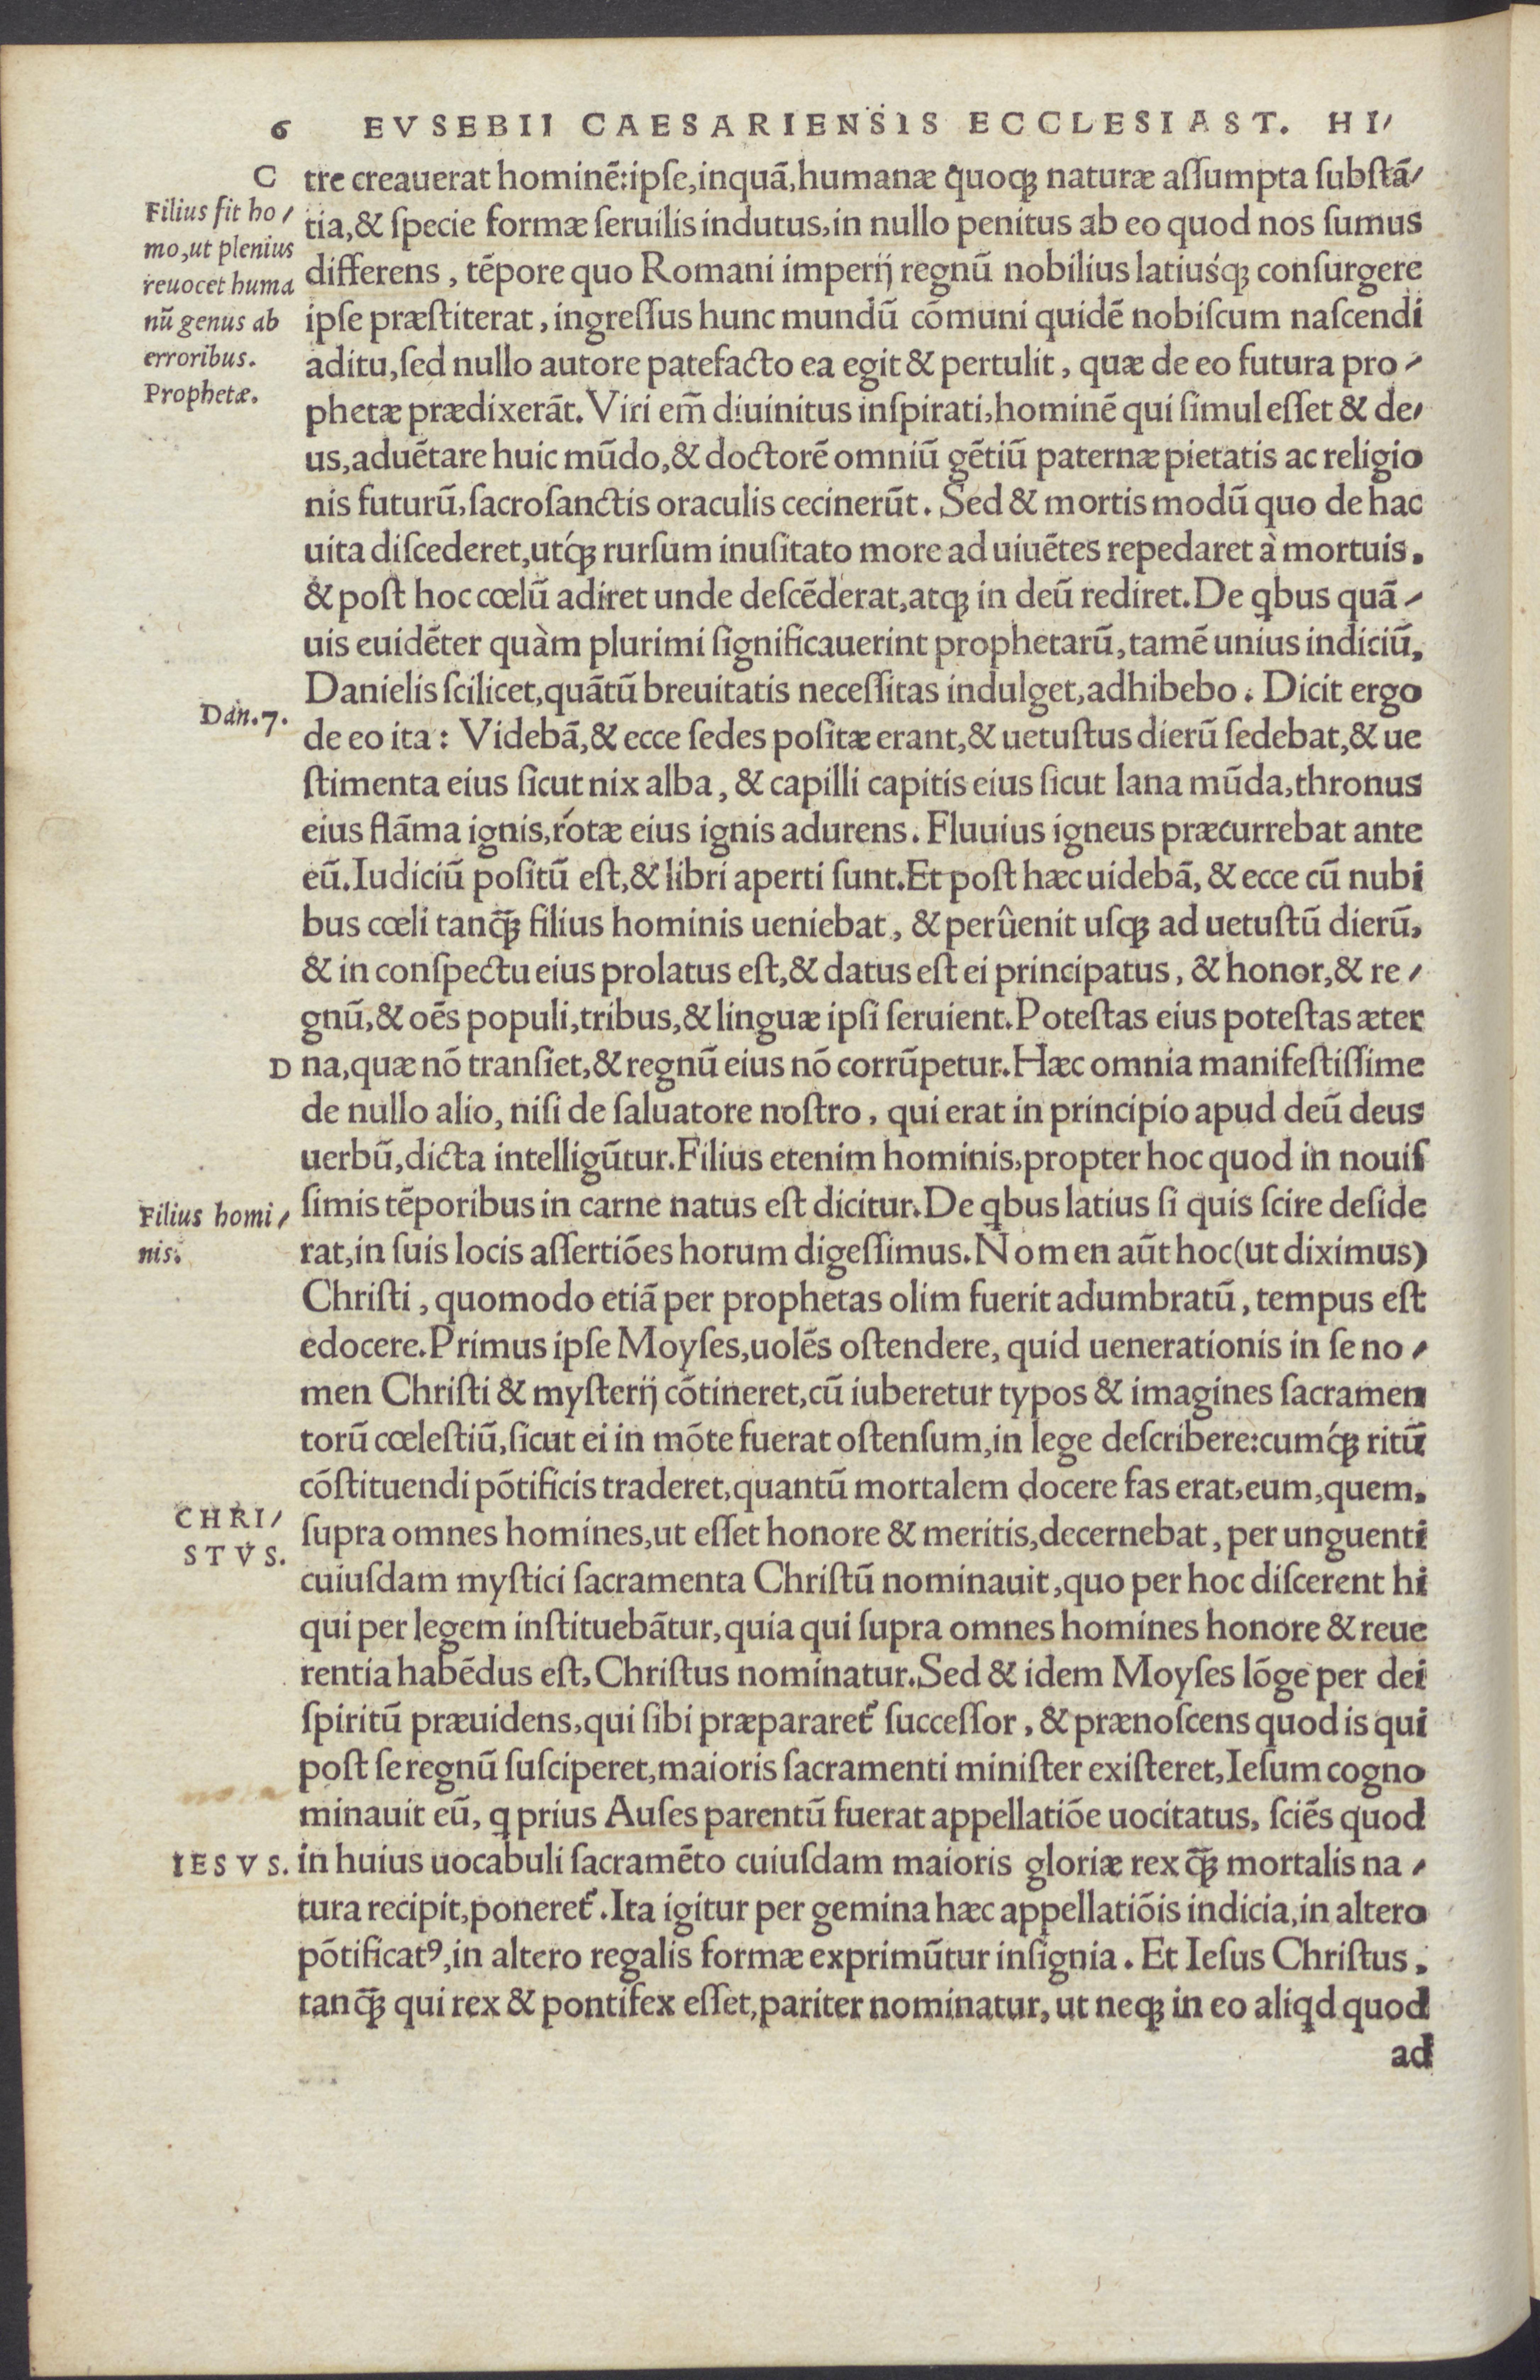 6 EVSEBII CAESARIENSIS ECCLESIAST. HI/
C
tre creauerat hominē:ipſe,inquã,humanæ quoqꝫ naturæ aſſumpta ſubſtã/
tia,& ſpecie formæ ſeruilis indutus,in nullo penitus ab eo quod nos ſumus
differens, tēpore quo Romani imperij regnū nobilius latiusq́ꝫ conſurgere
ipſe præſtiterat, ingreſſus hunc mundū cōmuni quidē nobiſcum naſcendi
aditu, ſed nullo autore patefacto ea egit & pertulit, quæ de eo futura pro/
phetæ prædixerãt. Viri em̄ diuinitus inſpirati, hominē qui ſimul eſſet & de/
us,aduētare huic mūdo,& doctorē omniū gētiū paternæ pietatis ac religio
nis futurū, ſacroſanctis oraculis cecinerūt. Sed & mortis modū quo de hac
uita diſcederet,utq́ꝫ rurſum inuſitato more ad uiuētes repedaret à mortuis.
& poſt hoc cœlū adiret unde deſcēderat,atqꝫ in deū rediret.De qbus quã/
uis euidēter quàm plurimi ſignificauerint prophetarū, tamē unius indiciū,
Danielis ſcilicet,quãtū breuitatis neceſſitas indulget,adhibebo. Dicit ergo
de eo ita: Videbã,& ecce ſedes poſitæ erant,& uetuſtus dierū ſedebat,& ue
ſtimenta eius ſicut nix alba, & capilli capitis eius ſicut lana mūda,thronus
eius flãma ignis,rotæ eius ignis adurens. Fluuius igneus præcurrebat ante
eū.Iudiciū poſitū eſt,& libri aperti ſunt.Et poſt hæc uidebã, & ecce cū nubi
bus cœli tanq̄ꝫ filius hominis ueniebat, & perûenit uſqꝫ ad uetuſtū dierū,
& in conſpectu eius prolatus eſt,& datus eſt ei principatus, & honor,& re/
gnū,& oēs populi,tribus,& linguæ ipſi ſeruient.Poteſtas eius poteſtas æter
na,quæ nō tranſiet,& regnū eius nō corrūpetur.Hæc omnia manifeſtiſſime
de nullo alio, niſi de ſaluatore noſtro, qui erat in principio apud deū deus
uerbū,dicta intelligūtur.Filius etenim hominis,propter hoc quod in nouiſ
ſimis tēporibus in carne natus eſt dicitur.De qbus latius ſi quis ſcire deſide
rat,in ſuis locis aſſertiōes horum digeſſimus.Nomen aūt hoc(ut diximus)
Chriſti, quomodo etiã per prophetas olim fuerit adumbratū, tempus eſt
edocere.Primus ipſe Moyſes,uolēs oſtendere, quid uenerationis in ſe no/
men Chriſti & myſterij cōtineret,cū iuberetur typos & imagines ſacramen
torū cœleſtiū,ſicut ei in mōte fuerat oſtenſum,in lege deſcribere:cumq́ꝫ ritū
cōſtituendi pōtificis traderet,quantū mortalem docere fas erat,eum,quem.
ſupra omnes homines,ut eſſet honore & meritis,decernebat, per unguenti
cuiuſdam myſtici ſacramenta Chriſtū nominauit,quo per hoc diſcerent hi
qui per legem inſtituebãtur,quia qui ſupra omnes homines honore & reue
rentia habēdus eſt, Chriſtus nominatur.Sed & idem Moyſes lōge per dei
ſpiritū præuidens,qui ſibi præpararet᷑ ſucceſſor, & prænoſcens quod is qui
poſt ſe regnū ſuſciperet,maioris ſacramenti miniſter exiſteret,Ieſum cogno
minauit eū, q prius Auſes parentū fuerat appellatiōe uocitatus, ſciēs quod
in huius uocabuli ſacramēto cuiuſdam maioris gloriæ rex q̄ꝫ mortalis na/
tura recipit,poneret᷑.Ita igitur per gemina hæc appellatiōis indicia,in altero
pōtificatꝰ,in altero regalis formæ exprimūtur inſignia. Et Ieſus Chriſtus,
tanq̄ꝫ qui rex & pontifex eſſet,pariter nominatur, ut neqꝫ in eo aliqd quod
ad
Filius fit ho/
mo,ut plenius
reuocet huma
nū genus ab
erroribus.
Prophetæ.
Dan.7.
D
Filius homi/
nis.
CHRI/
STVS.
IESVS.